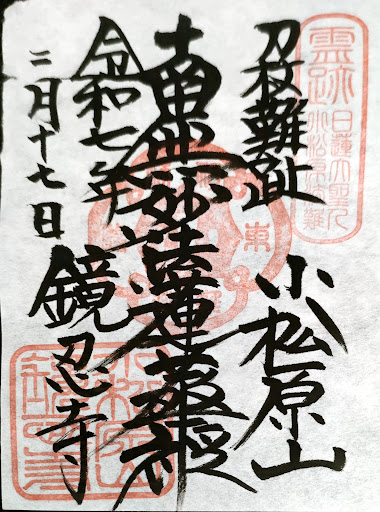 靈跡
日蓮大聖人
刀杖難趾
小松原山
南無妙法蓮華経
東
令和七年
二月十七日
鏡忍寺